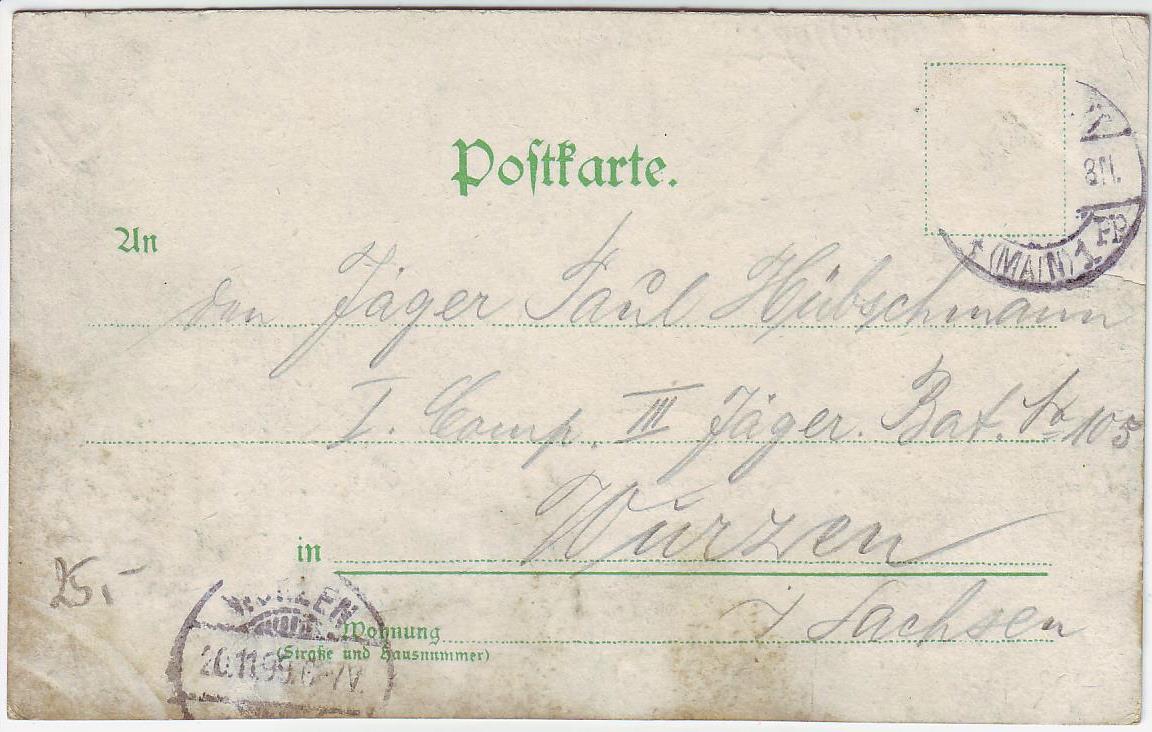 Postkarte.
(MAIN) 1.
An
den Jäger Paul Hübschmann
I. Comp. III Jäger. Bat. No 105
in Wurzen
i/ Sachsen
25.-
WURZEN
20.11.99.
Wohnung
(Straße und Hausnummer)